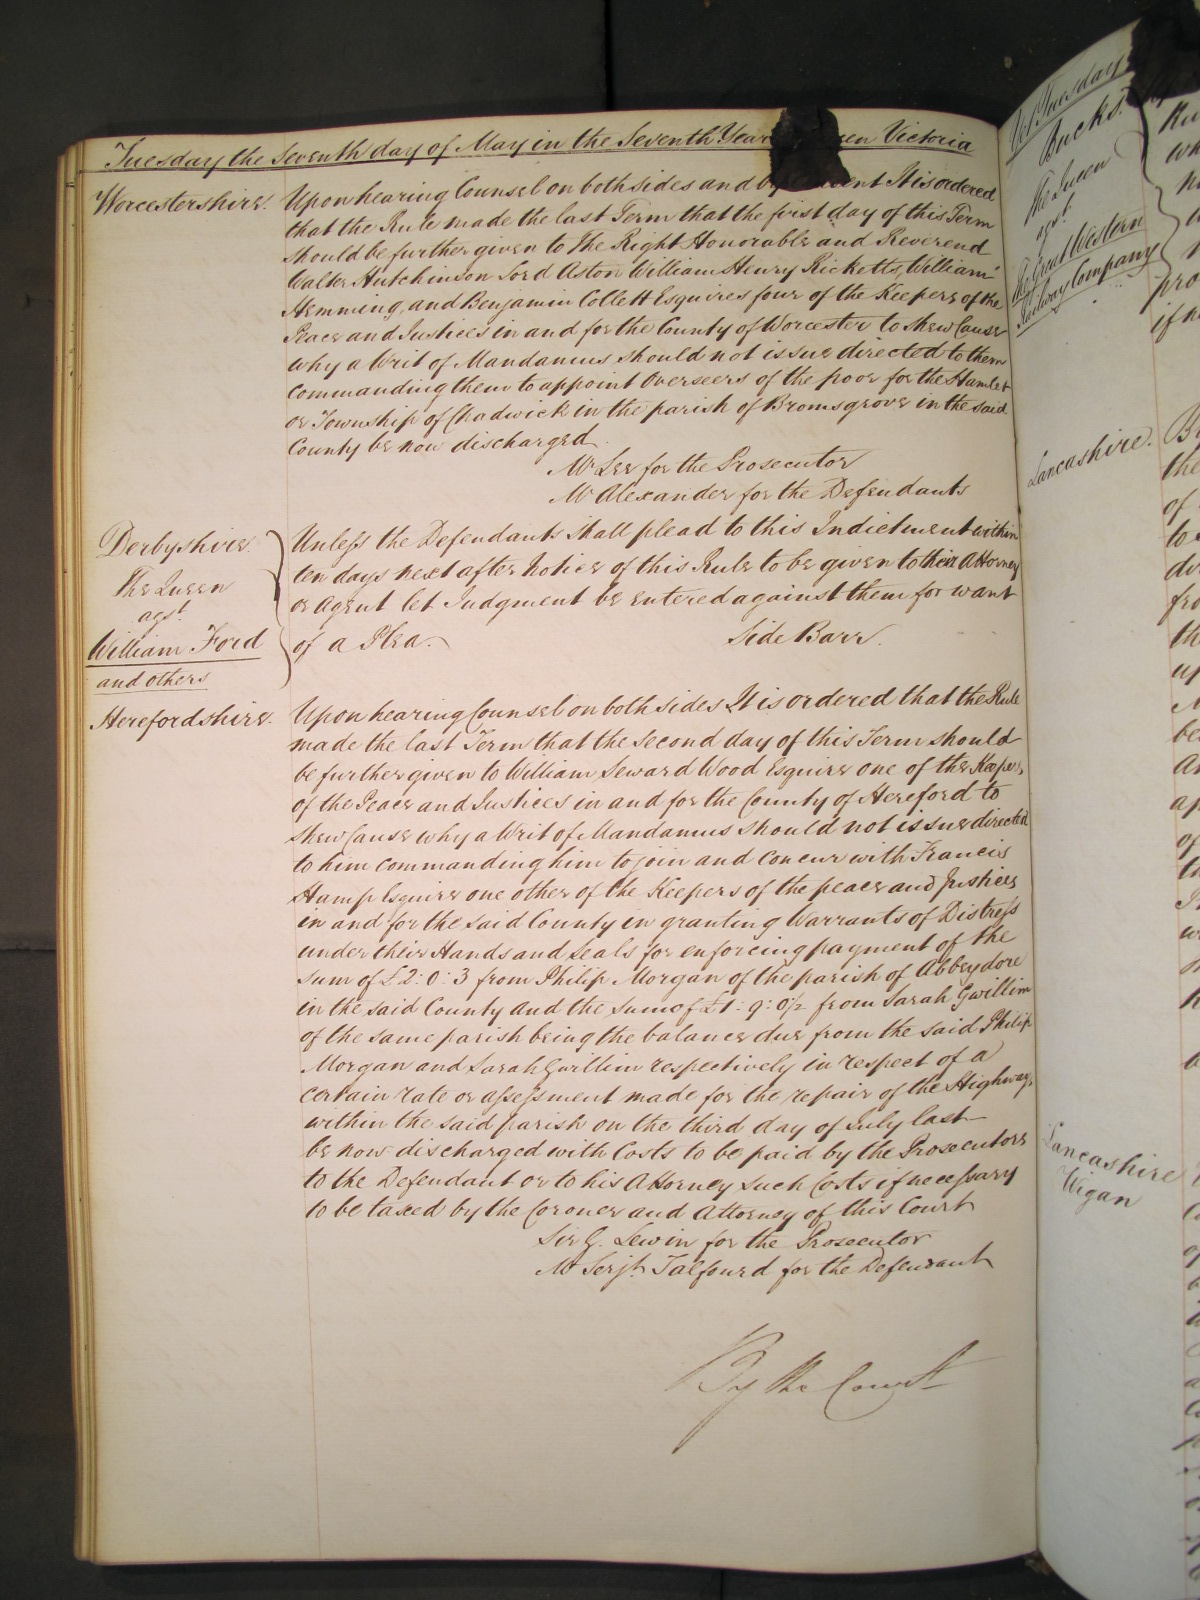 Tuesday the Seventh day of May in the Seventh Year Victoria
Worcestershire.
Upon hearing Counsel on both sides and by It is ordered
that the Rule made the last Term that the first day of this Term
should be further given to The Right Honorable and Reverend
Walter Hutchinson Lord Aston William Henry Ricketts, William
Hemming, and Benjamin Collett Esquires four of the Keepers of the
Peace and Justices in and for the County of Worcester to shew Cause
why a Writ of Mandamus should not issue directed to them
Commanding them to appoint Overseers of the poor for the Hamlet
or Township of Chadwick in the parish of Bromsgrove in the said
County be now discharged.
Mr Lee for the Prosecutor
Mr Alexander for the Defendants
Derbyshire.
The Queen
agst.
William Ford
and others
Unless the Defendants shall plead to this Indictment within
ten days next after Notice of this Rule to be given to their Attorney
or Agent let Judgment be entered against them for want
of a Plea.
Side Barr.
Herefordshire.
Upon hearing Counsel on both sides It is ordered that the Rule
made the last Term that the second day of this Term should
be further given to William Seward Wood Esquire one of the Keepers
of the Peace and Justices in and for the County of Hereford to
shew Cause why a Writ of Mandamus should not issue directed
to him commanding him to join and concur with Francis
Hamp Esquire one other of the Keepers of the peace and Justices
in and for the said County in granting Warrants of Distress
under their Hands and Seals for enforcing payment of the
sum of £2: 0: 3 from Philip Morgan of the parish of Abbeydore
in the said County and the sum of £1: 9: 0½ from Sarah Gwillim
of the same parish being the balance due from the said Philip
Morgan and Sarah Gwillim respectively in respect of a
certain rate or assessment made for the repair of the Highways
within the said parish on the third day of July last
be now discharged with Costs to be paid by the Prosecutors
to the Defendant or to his Attorney such Costs if necessary
to be taxed by the Coroner and Attorney of this Court
Sir G. Lewin for the Prosecutor
Mr Serjt. Talfourd for the Defendant
By the Court
Tuesday
Bucks.
The Queen
agst.
The Great Western
Railway Company
Lancashire.
Lancashire
Wigan